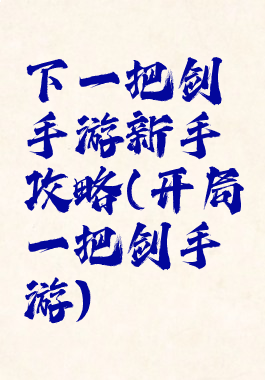 下一把剑
手游新手
攻略(开局
一把剑手
游)